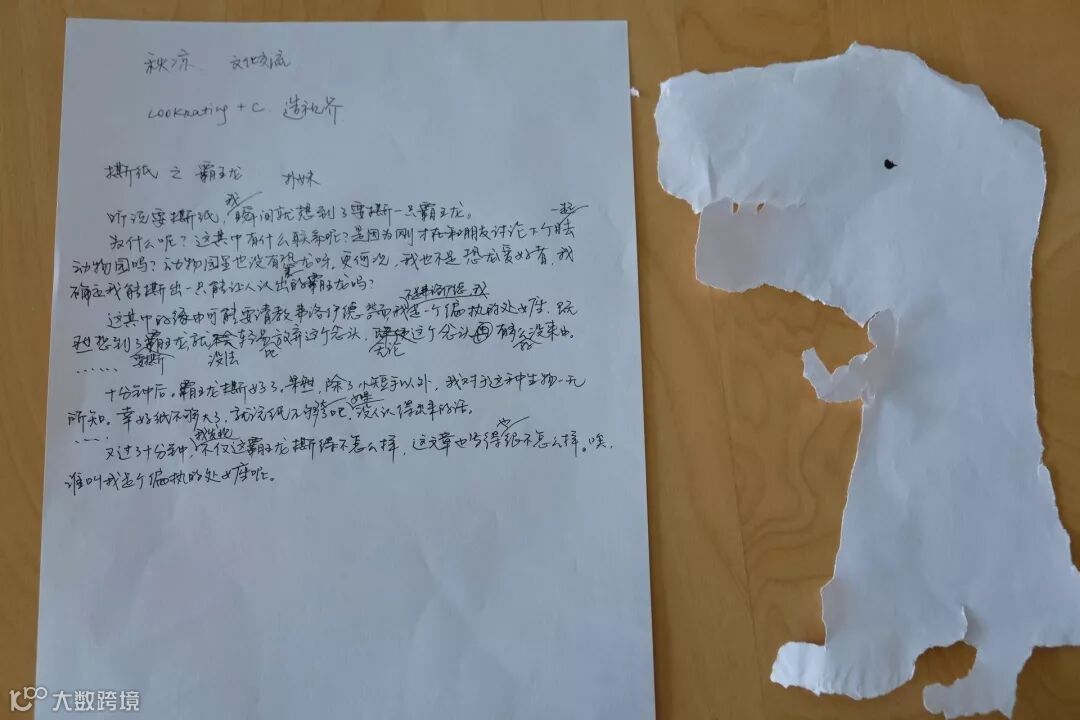 秋凉、 文化交流
Lookmating + C 造视界
撕纸 之 霸王龙 孙妹
听说要撕纸，我瞬间就想到了要撕一只霸王龙。
为什么呢？这其中有什么联系呢？是因为刚才在和朋友讨论下个月一起去
动物园吗？动物园里也没有恐龙呀。更何况，我也不是恐龙爱好者，我
确定我能撕出一只能让人认出的霸王龙吗？
这其中的缘由可能要请教弗洛伊德 不是弗洛伊德，我 我是一个偏执的处女座。既
想到了要撕霸王龙，就没法轻易放弃这个念头，无论这个念头有多么没来由。
……
十分钟后。霸王龙撕好了。果然，除了小短手以外，我对于这种生物一无
所知。幸好纸不够大了，就说纸不够吧，如果没人认得出来的话。
……
又过了十分钟，我发现不仅这霸王龙撕得不怎么样，这文章也写得很不怎么样。唉，
谁叫我是个偏执的处女座呢。
大数跨境